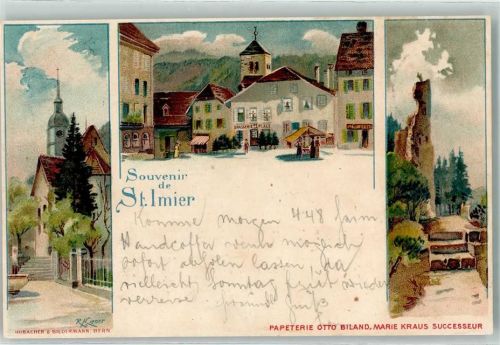 Souvenir
de
St. Imier
Komme morgen 4 48 heim.
Handcoffer wenn möglich
sofort abholen lassen, da
vielleicht Sonntag jezt wieder
verreise
HUBACHER & BIEDERMANN, BERN
PAPETERIE OTTO BILAND, MARIE KRAUS SUCCESSEUR